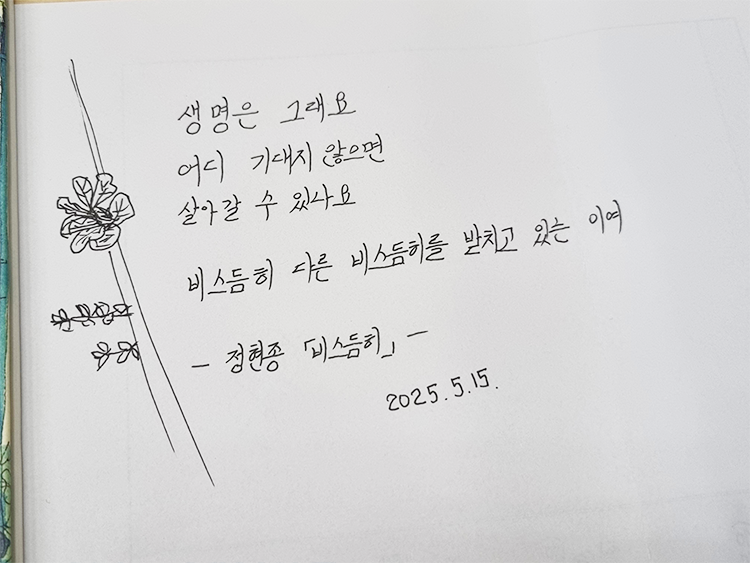 생명은 그래요
어디 기대지 않으면
살아갈 수 있나요
비스듬히 다른 비스듬히를 받치고 있는 이여
— 정현종 「비스듬히」 —
2025.5.15.